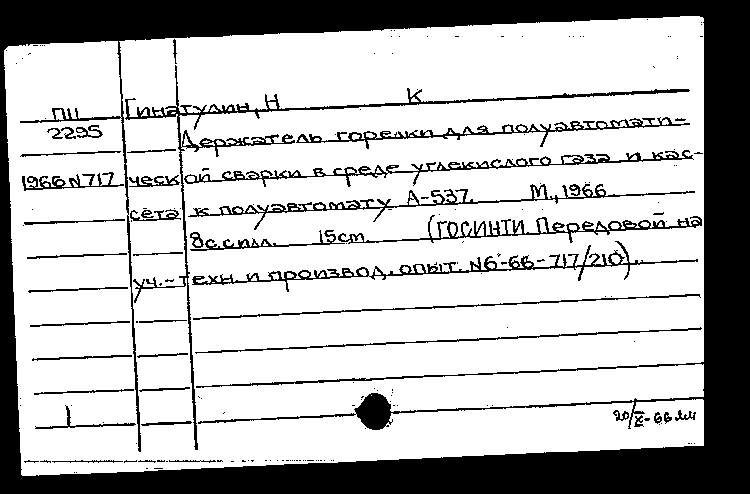 Гинатулин, Н К
ПII
2295
Держатель горелки для полуавтомати-
1966 N 717 ческой сварки в среде углекислого газа и кас-
сета к полуавтомату А-537. М., 1966
8с. с илл. 15см. (ГОСИНТИ Передовой на
уч.-техн и производ. опыт. N6-66-717/210).
1
20/X-66 лл